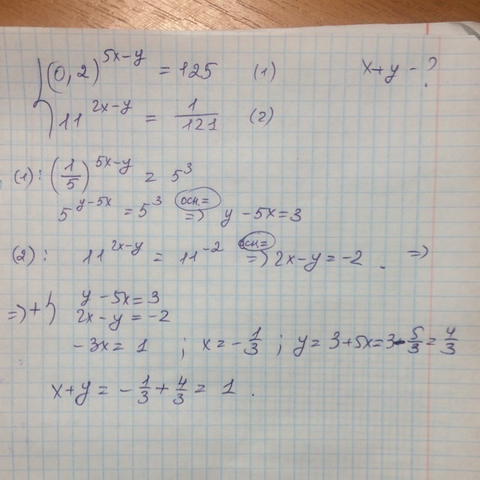 { (0,2)^{5x-y} = 125 (1) x+y - ?
11^{2x-y} = 1/121 (2)
(1): (1/5)^{5x-y} = 5^3
5^{y-5x} = 5^3 осн= => y - 5x = 3
(2): 11^{2x-y} = 11^{-2} осн= => 2x - y = -2 . =>
=> + { y - 5x = 3
2x - y = -2
-3x = 1 ; x = -1/3 ; y = 3+5x = 3 - 5/3 = 4/3
x+y = -1/3 + 4/3 = 1 .